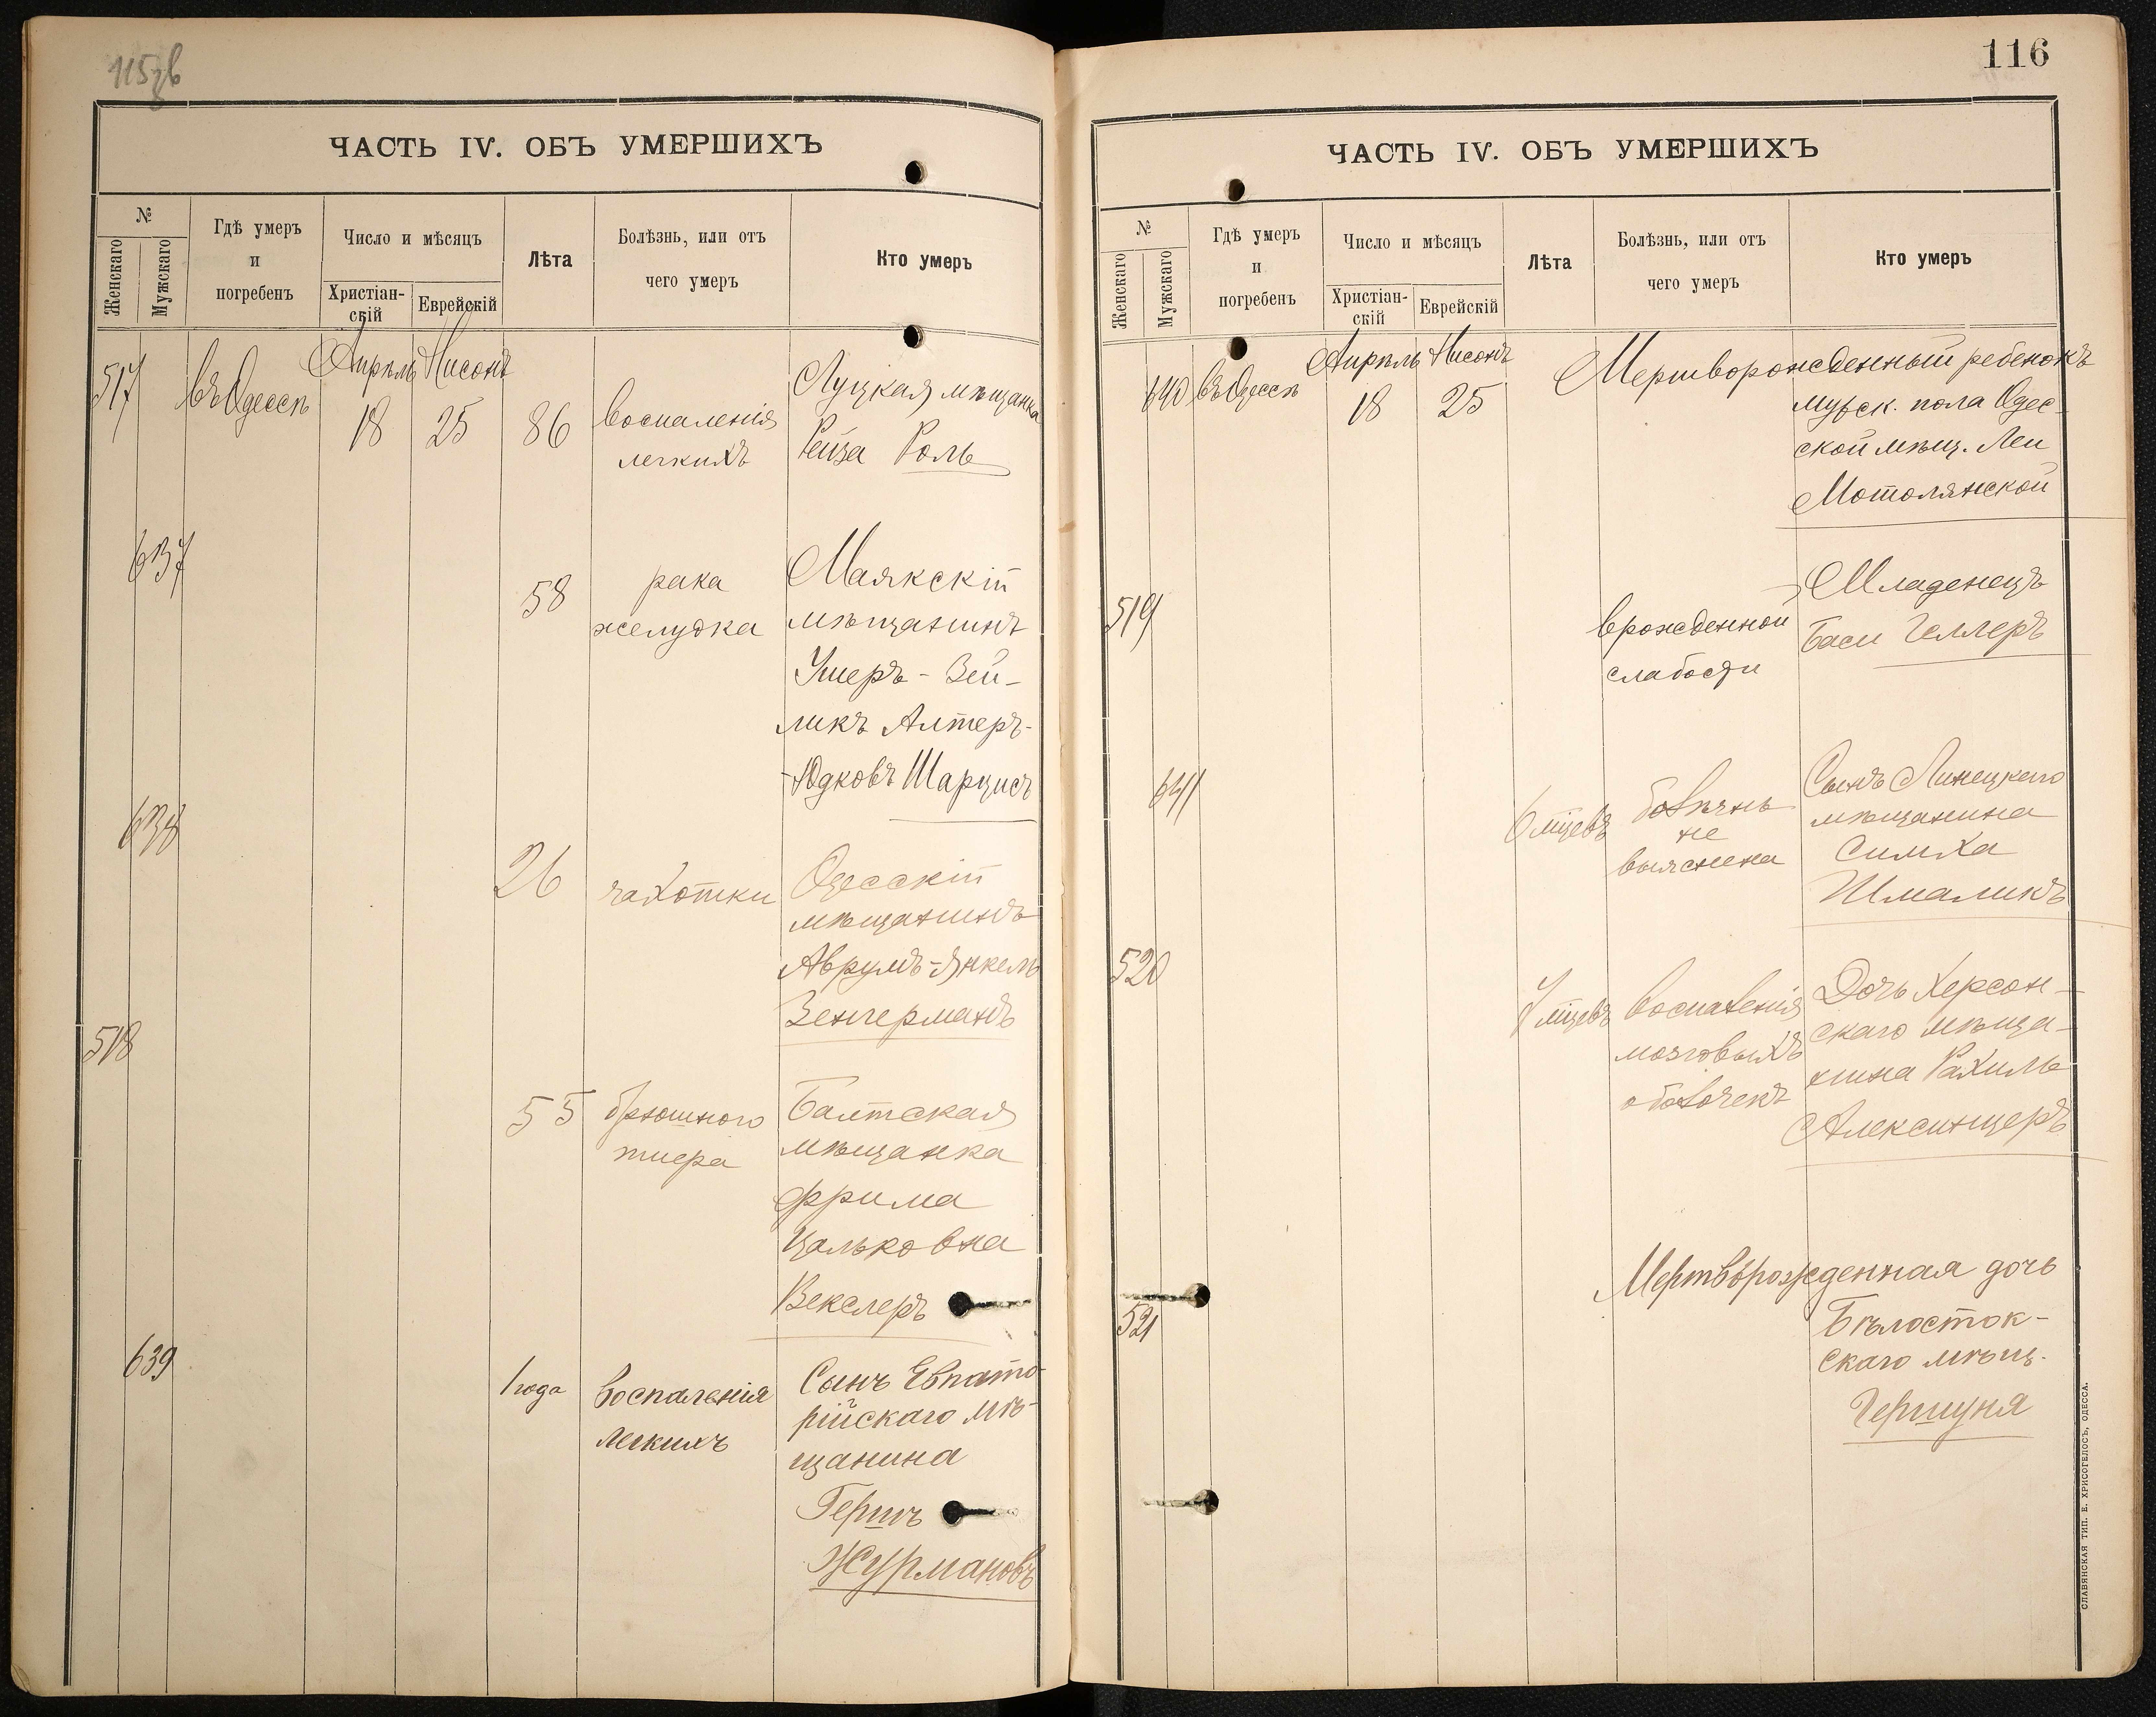 115 зв
ЧАСТЬ IV. ОБЪ УМЕРШИХЪ
№
Женскаго
Мужскаго
Гдѣ умеръ
и
погребенъ
Число и мѣсяцъ
Христіан-
скій
Еврейскій
Лѣта
Болѣзнь, или отъ
чего умеръ
Кто умеръ
517
въ Одессѣ
Апрѣль
18
Нисонъ
25
86
воспаленія
легкихъ
Луцкая мѣщанка
Рейза Роль
637
58
рака
желудка
Маякскій
мѣщанинъ
Ушеръ-Зей-
ликъ Алтеръ-
-Юдковъ Шарцисъ
638
26
чахотки
Одесскій
мѣщанинъ
Аврумъ-Янкель
Зенгерманъ
518
55
брюшного
тифа
Балтская
мѣщанка
Фрима
Цальковна
Векслеръ
639
1 года
воспаленія
легкихъ
Сынъ Евпато-
рійскаго мѣ-
щанина
Гершъ
Журмановъ
116
ЧАСТЬ IV. ОБЪ УМЕРШИХЪ
№
Женскаго
Мужскаго
Гдѣ умеръ
и
погребенъ
Число и мѣсяцъ
Христіан-
скій
Еврейскій
Лѣта
Болѣзнь, или отъ
чего умеръ
Кто умеръ
640
въ Одессѣ
Апрѣль
18
Нисонъ
25
Мертворожденный ребенокъ
мужск. пола Одес-
ской мѣщ. Леи
Мотолянской
519
врожденной
слабости
Младенецъ
Баси Геллеръ
641
6 мцевъ
болѣзнь
не
выяснена
Сынъ Линецкаго
мѣщанина
Симха
Шмаликъ
520
7 мцевъ
воспаленія
мозговыхъ
оболочекъ
Дочь Херсон-
скаго мѣща-
нина Рахиль
Алексинцеръ
521
Мертворожденная дочь
Бѣлосток-
скаго мѣщ.
Гершуня
СЛАВЯНСКАЯ ТИП. Е. ХРИСОГЕЛОСЪ, ОДЕССА.